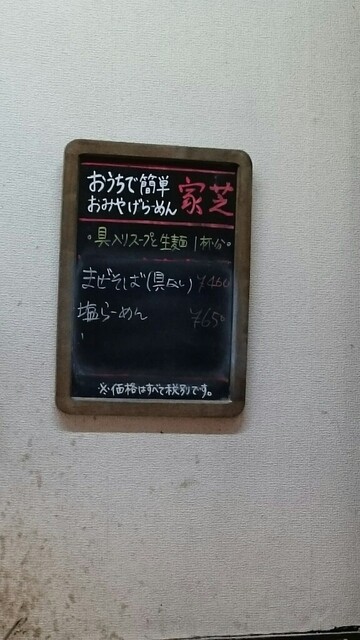 おうちで簡単
おみやげらーめん
家芝
・具入りスープと生麺1杯分・
まぜそば(具なし) ¥460
塩らーめん ¥650
※価格はすべて税別です。